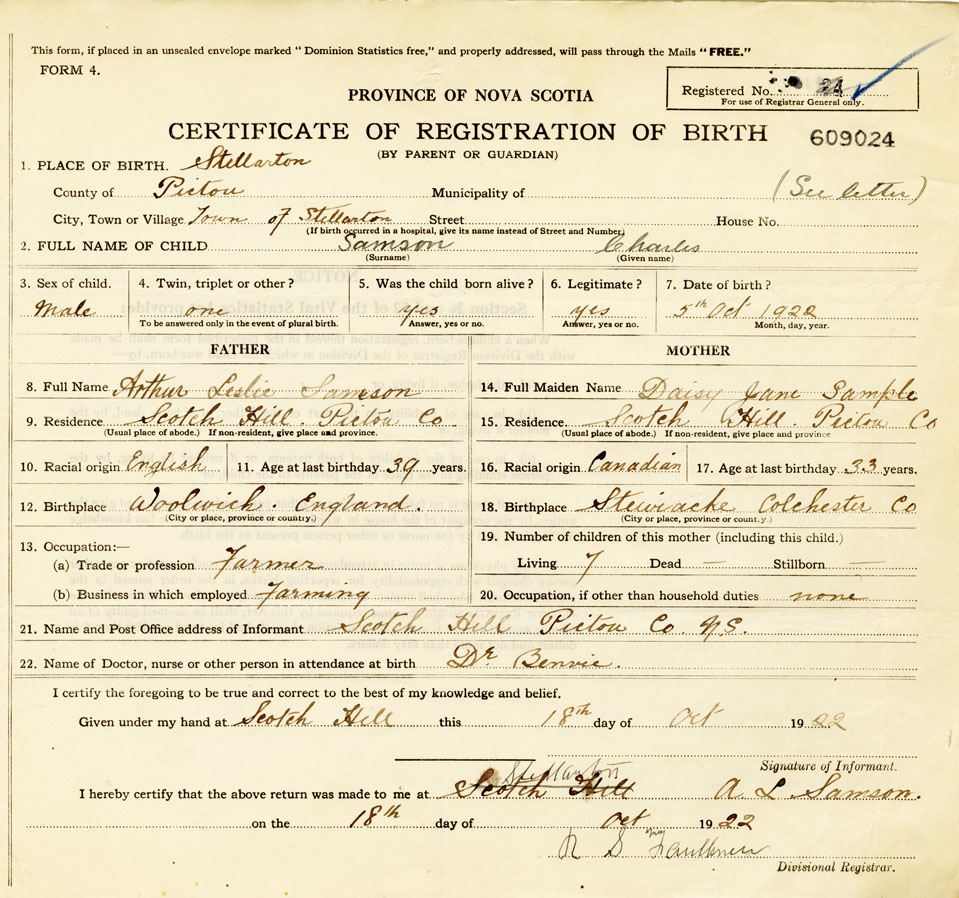 This form, if placed in an unsealed envelope marked "Dominion Statistics free," and properly addressed, will pass through the Mails "FREE."
FORM 4.
Registered No. 24
For use of Registrar General only.
PROVINCE OF NOVA SCOTIA
CERTIFICATE OF REGISTRATION OF BIRTH 609024
(BY PARENT OR GUARDIAN)
1. PLACE OF BIRTH. Stellarton
County of Pictou Municipality of (See letter)
City, Town or Village Town of Stellarton Street House No.
(If birth occurred in a hospital, give its name instead of Street and Number)
2. FULL NAME OF CHILD Samson Charles
(Surname) (Given name)
3. Sex of child. 4. Twin, triplet or other? 5. Was the child born alive? 6. Legitimate? 7. Date of birth?
Male one yes yes 5th Oct 1922
To be answered only in the event of plural birth. Answer, yes or no. Answer, yes or no. Month, day, year.
FATHER MOTHER
8. Full Name Arthur Leslie Samson 14. Full Maiden Name Daisy Jane Sample
9. Residence Scotch Hill. Pictou Co. 15. Residence Scotch Hill. Pictou Co
(Usual place of abode.) If non-resident, give place and province. (Usual place of abode.) If non-resident, give place and province
10. Racial origin English 11. Age at last birthday 39 years. 16. Racial origin Canadian 17. Age at last birthday 33 years.
12. Birthplace Woolwich. England. 18. Birthplace Stewiacke Colchester Co
(City or place, province or country.) (City or place, province or country.)
13. Occupation:— 19. Number of children of this mother (including this child.)
(a) Trade or profession Farmer Living 7 Dead — Stillborn —
(b) Business in which employed Farming 20. Occupation, if other than household duties none
21. Name and Post Office address of Informant Scotch Hill Pictou Co. N.S.
22. Name of Doctor, nurse or other person in attendance at birth Dr Benvie.
I certify the foregoing to be true and correct to the best of my knowledge and belief.
Given under my hand at Scotch Hill this 18th day of Oct 1922
Signature of Informant.
Stellarton
I hereby certify that the above return was made to me at Scotch Hill A L Samson.
on the 18th day of Oct 1922
Faulkner
Divisional Registrar.